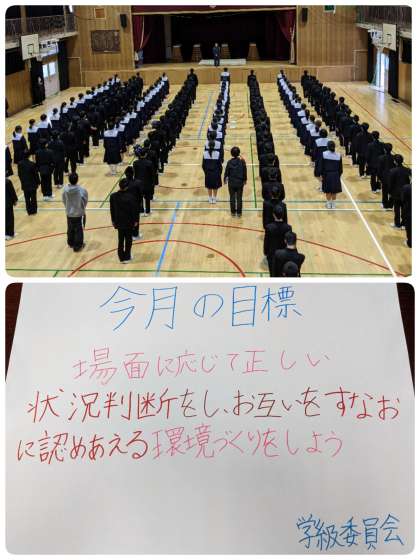 今月の目標
場面に応じて正しい
状況判断をし、お互いをすなお
に認めあえる環境づくりをしよう
学級委員会